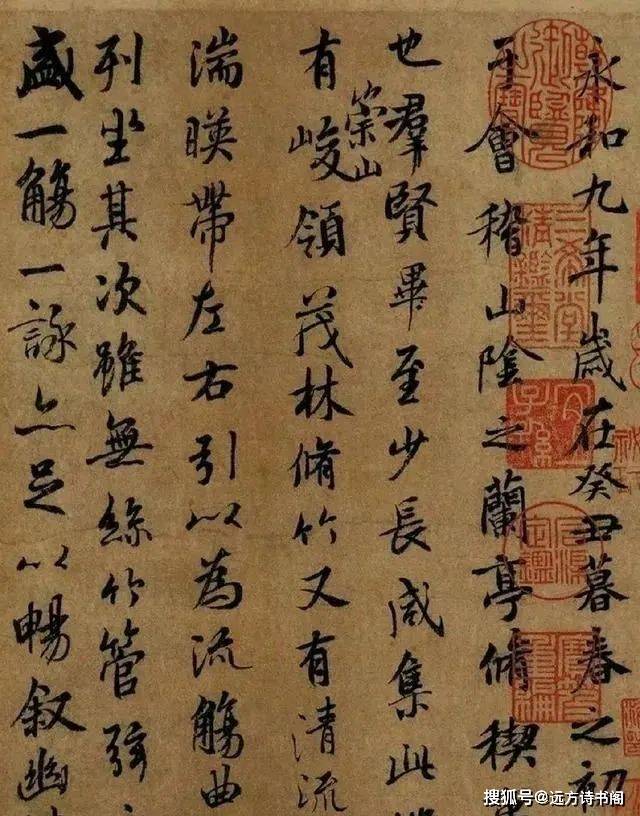 永和九年歲在癸丑暮春之初
于會稽山陰之蘭亭脩稧
也羣賢畢至少長咸集此
有崇山峻領茂林脩竹又有清流
湍暎帶左右引以為流觴曲
列坐其次雖無絲竹管弦
盛一觴一詠亦足以暢敘幽
三希堂精鑑璽
宜子孫
搜狐号@远方诗书阁